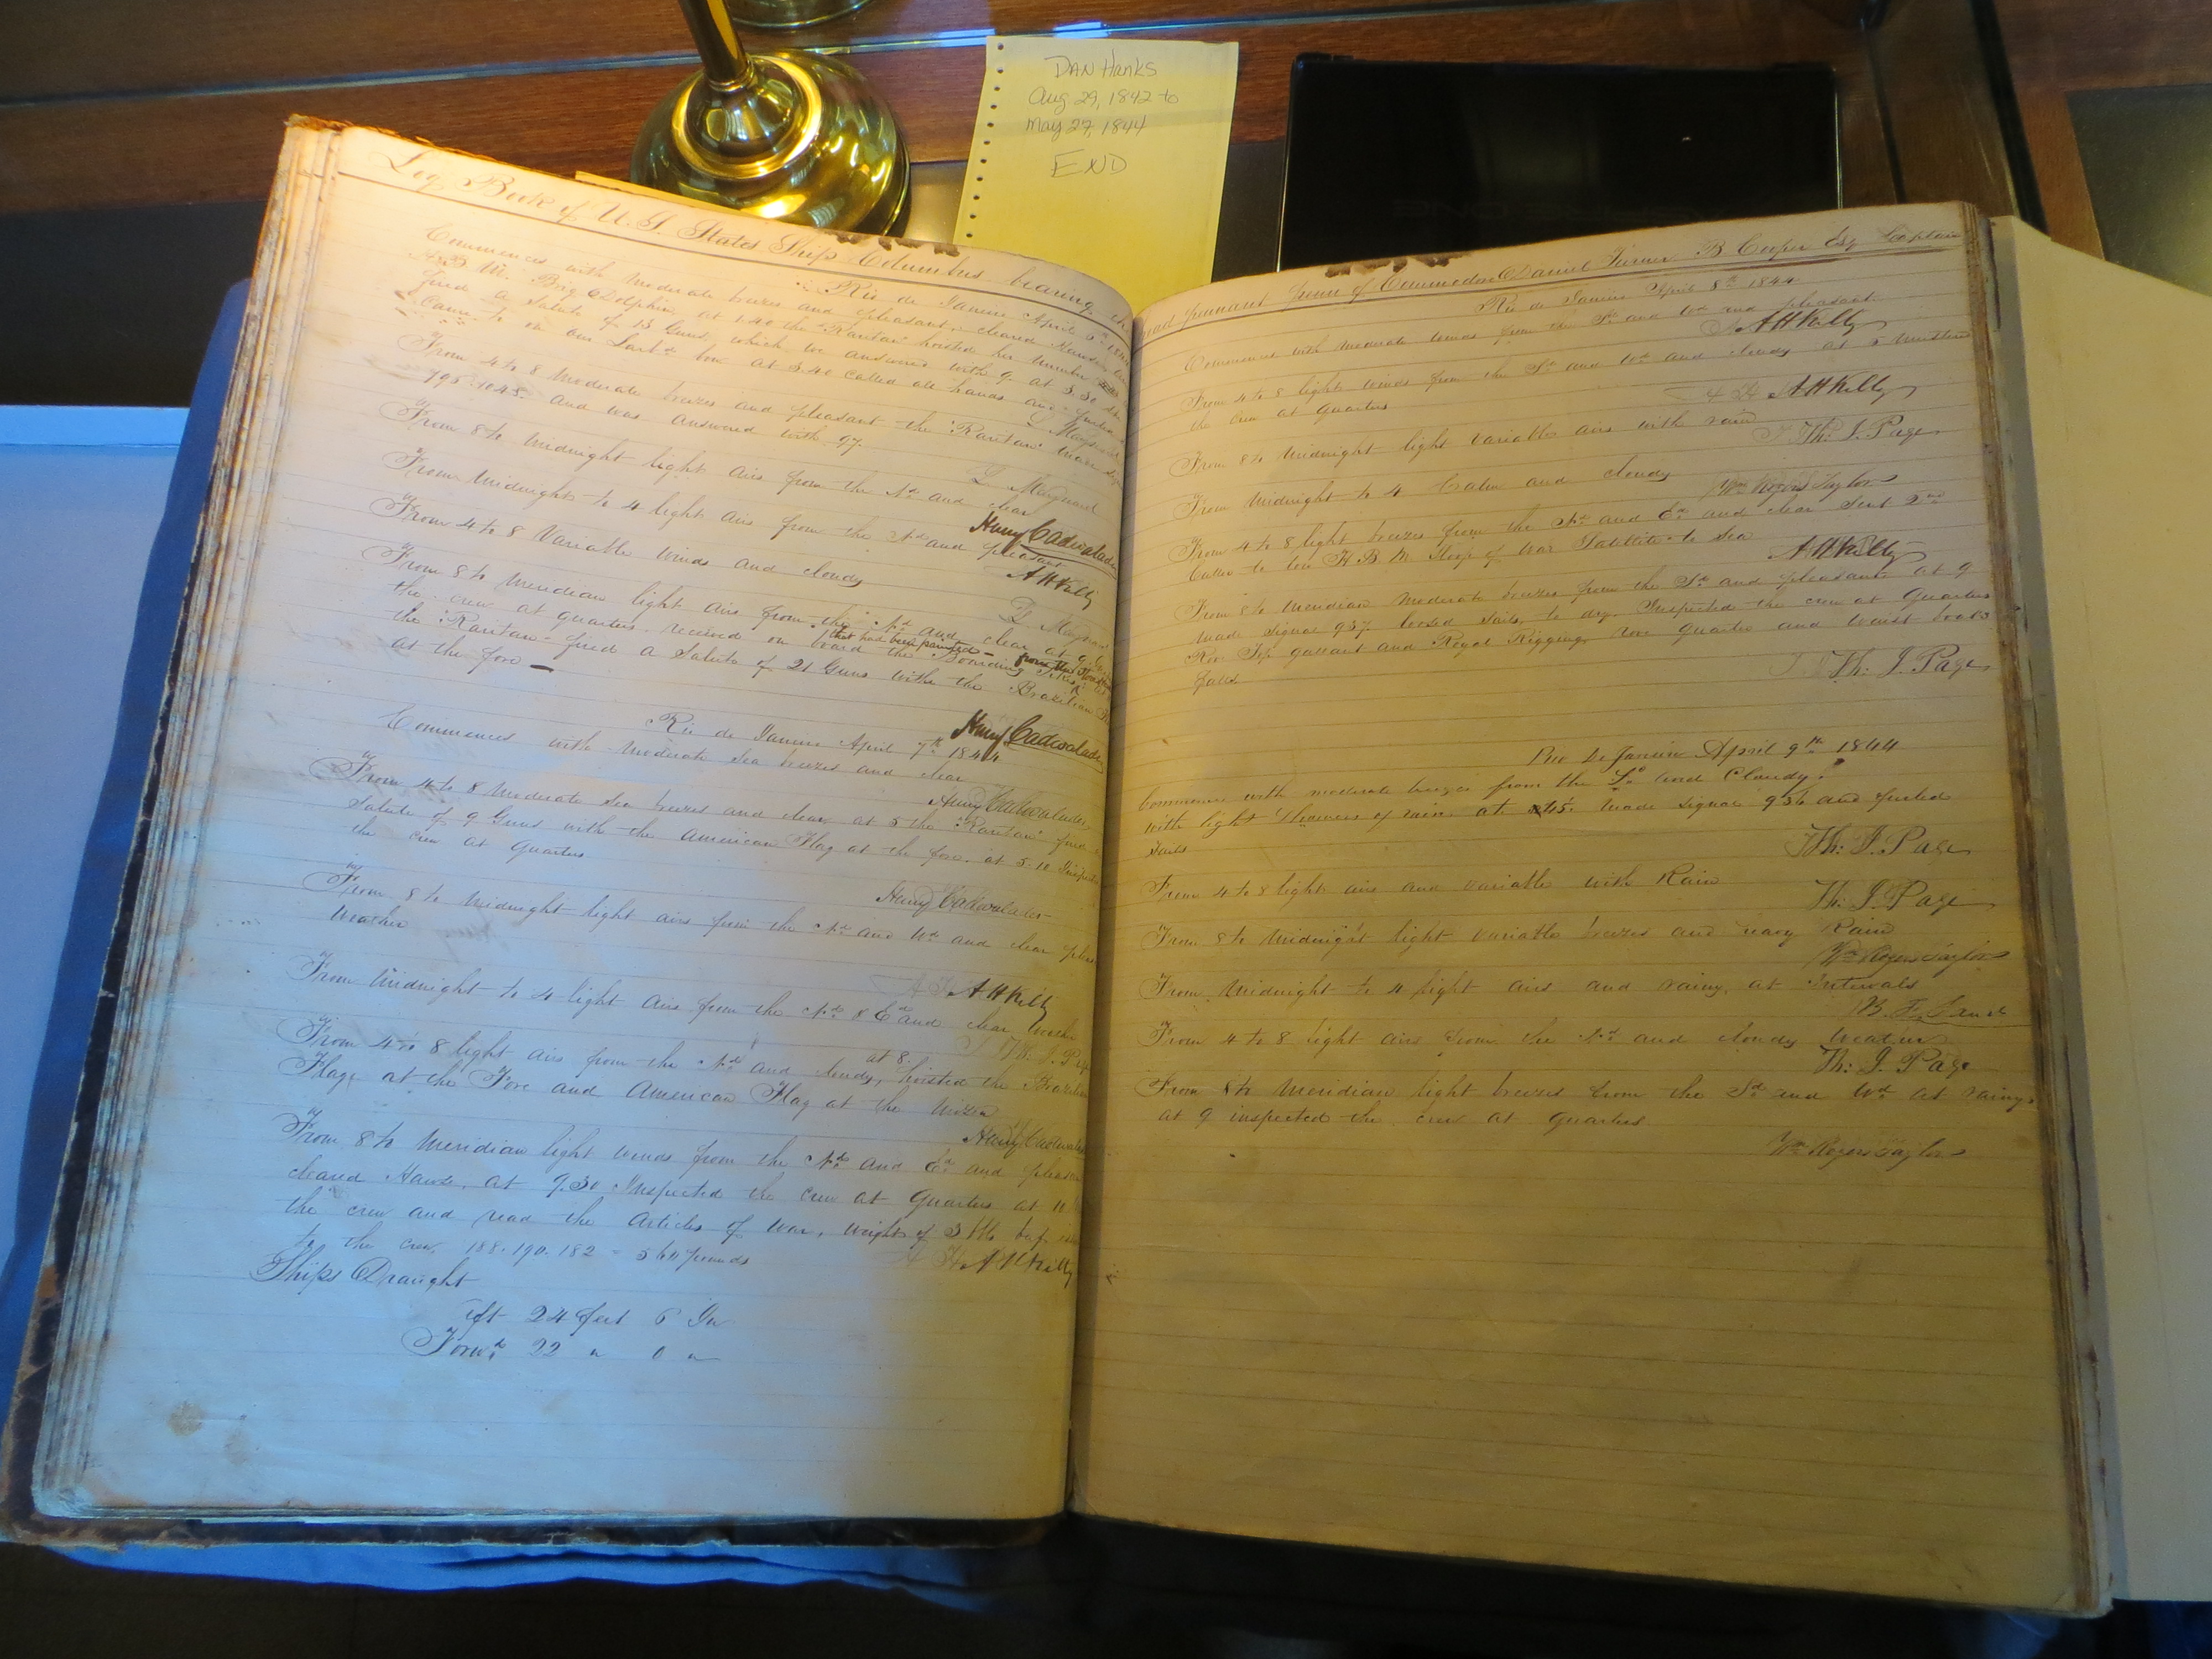 DAN Hanks
Aug 29, 1842 to
May 27, 1844
END
Log Book of U. S. States Ship Columbus bearing the
Rio de Janeiro April 6th 1844
Commences with moderate breezes and pleasant, cleared Hawse
H. B. M. Brig Dolphin, at 1.40 the "Raritan" hoisted her number
fired a Salute of 13 Guns, which we answered with 9. at 3.30 she
came to on our Larbd bow at 3.40 called all hands and
From 4 to 8 Moderate breezes and pleasant the "Raritan" made
795.1045. and was answered with 97.
L Maynard
From 8 to Midnight light airs from the Nd and clear
Henry Cadwalader
From Midnight to 4 light airs from the Nd and pleasant
A H Kilty
From 4 to 8 Variable winds and cloudy
From 8 to Meridian light airs from the Nd and clear at 9
the crew at quarters. received on board the Boarding Pikes
that had been painted — from the
the "Raritan" fired a Salute of 21 Guns with the Brazilian
at the fore —
Henry Cadwalader
Rio de Janeiro April 7th 1844
Commences with moderate sea breezes and clear
Henry Cadwalader
From 4 to 8 Moderate sea breezes and clear at 5 the "Raritan" fired
Salute of 9 Guns with the American Flag at the fore. at 5.10 Inspected
the crew at quarters
Henry Cadwalader
From 8 to Midnight light airs from the Nd and Wd and clear
Weather
A H Kilty
From Midnight to 4 light airs from the Nd & Ed and clear
From 4 to 8 light airs from the Nd and cloudy, at 8. hoisted the Brazilian
Flag at the Fore and American Flag at the Mizen
Henry Cadwalader
From 8 to Meridian light winds from the Nd and Ed and
cleared Hawse. at 9.30 Inspected the crew at Quarters at
the crew and read the Articles of War. weight of
to the crew. 188. 190. 182 = 560 pounds
A H Kilty
Ships Draught
aft 24 feet 6 In
Forwd 22 " 0 "
road pennant from of Commodore Daniel Turner B Cooper Esq Captain
Rio de Janeiro April 8th 1844
Commences with moderate winds from the Sd and Wd and pleasant
A H Kilty
From 4 to 8 light winds from the Sd and Wd and cloudy at 5 mustered
the crew at quarters
A H Kilty
From 8 to Midnight light variable airs with rain
Th: J. Page
From Midnight to 4 Calm and cloudy
Wm Rogers Taylor
From 4 to 8 light breezes from the Nd and Ed and clear Sent 2nd
Cutter to tow H. B. M. Sloop of War Satellite to Sea
A H Kilty
From 8 to Meridian moderate breezes from the Sd and pleasant at 9
made Signal 937. loosed Sails to dry. Inspected the crew at Quarters
Top gallant and Royal Rigging. quarter and waist boats
falls.
Th: J. Page
Rio de Janeiro April 9th 1844
Commence with moderate breezes from the Sd and Cloudy,
with light showers of rain. at 45. made Signal 936 and furled
sails
Th: J. Page
From 4 to 8 light airs and variable with Rain
Th: J. Page
From 8 to Midnight light variable breezes and heavy Rain
Wm Rogers Taylor
From Midnight to 4 light airs and rainy, at Intervals
From 4 to 8 light airs from the Sd and cloudy weather
Th: J. Page
From 8 to Meridian light breezes from the Sd and Wd at rainy
at 9 inspected the crew at quarters
Wm Rogers Taylor